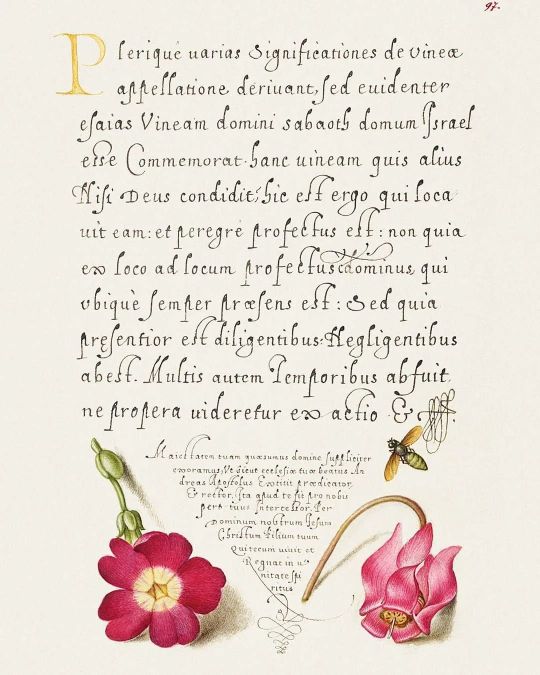 97.
Pleriquè uarias Significationes de vineæ
appellatione deriuant, sed euidenter
esaias Vineam domini sabaoth domum Israel
esse Commemorat. hanc uineam quis alius
Nisi Deus condidit; hic est ergo qui loca
uit eam: et peregrè profectus est: non quia
ex loco ad locum profectus dominus, qui
vbiquè semper præsens est: Sed quia
presentior est diligentibus. Negligentibus
abest. Multis autem Temporibus abfuit,
ne propera uideretur exactio. &
Maiestatem tuam quæsumus domine, suppliciter
exoramus, Vt sicut ecclesiæ tuæ beatus An
dreas Apostolus Extitit prædicator,
& rector, ita apud te sit pro nobis
perpetuus Intercessor. Per
Dominum nostrum Iesum
Christum Filium tuum
Qui tecum uiuit et
Regnat in u
nitate spi
ritus